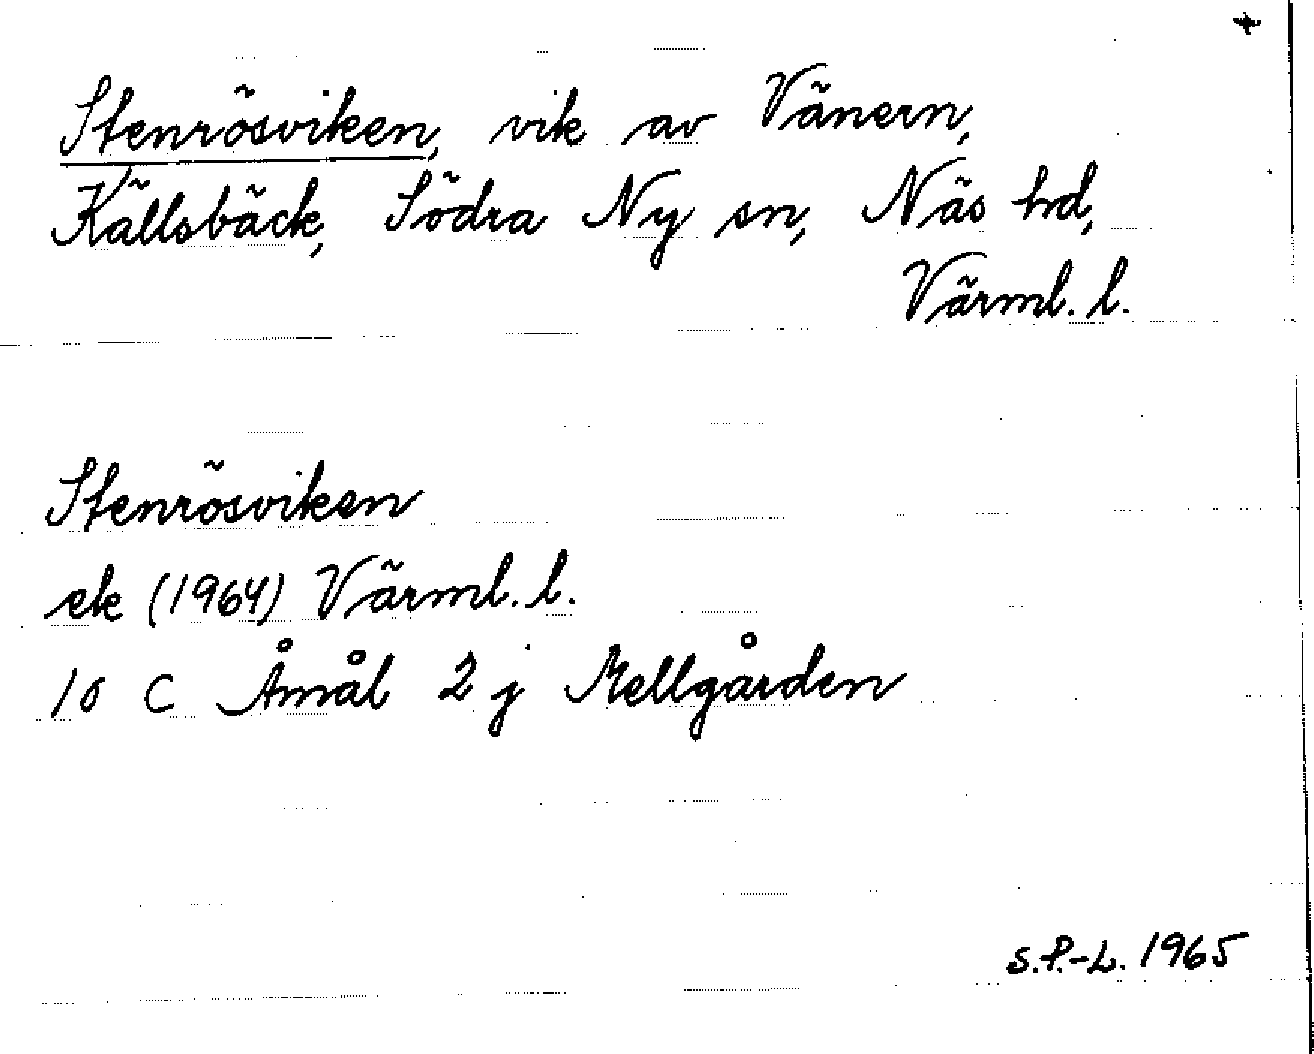 Stenrösviken, vik av Vänern,
Källsbäck, Södra Ny sn, Näs hd,
Värml. l.
Stenrösviken
ek (1964) Värml. l.
10 C Åmål 2 j Mellgården
S.P.-L. 1965